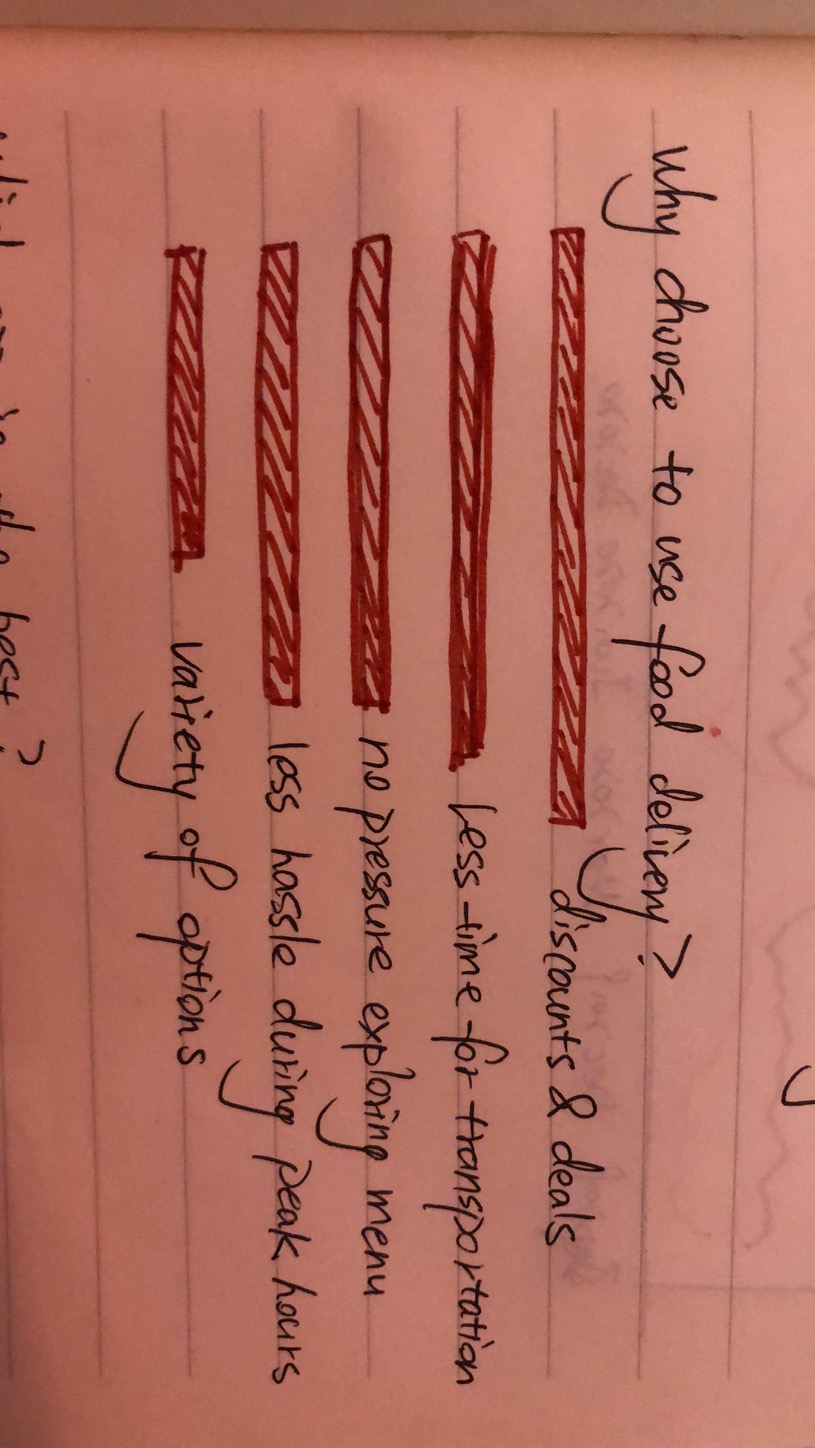 why choose to use food delivery?
discounts & deals
Less time for transportation
no pressure exploring menu
less hassle during peak hours
variety of options
is the best?